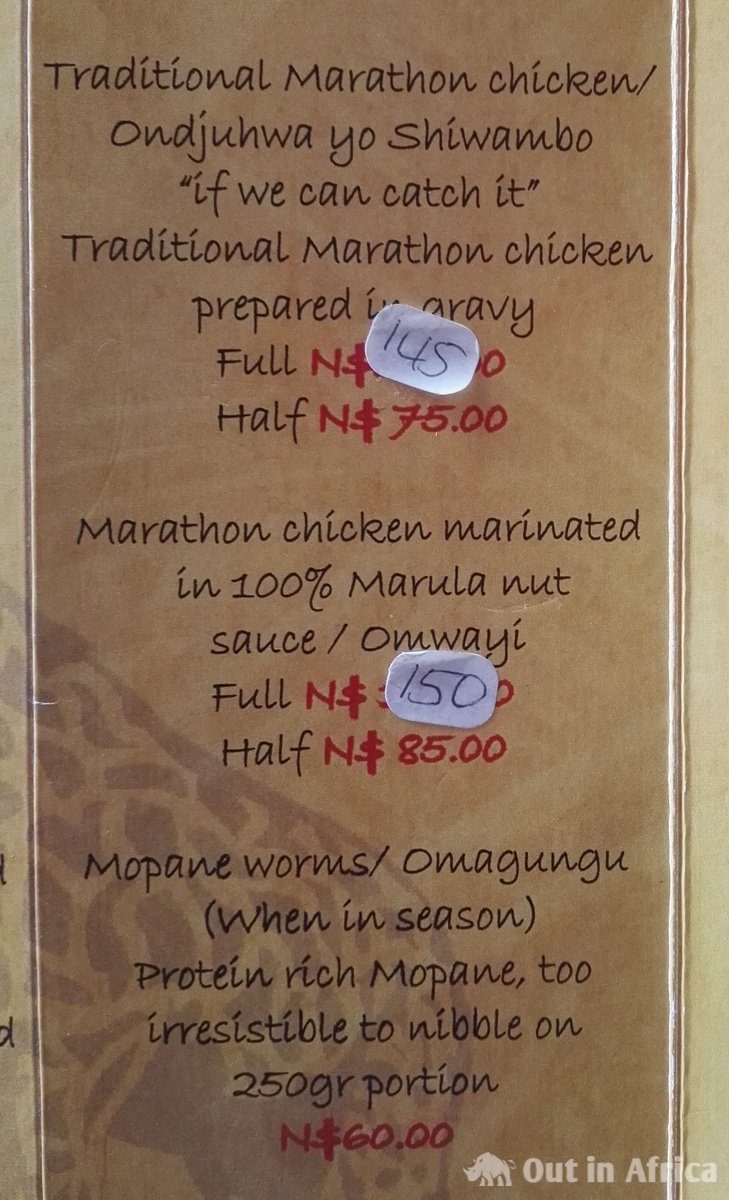 Traditional Marathon chicken/
Ondjuhwa yo Shiwambo
"if we can catch it"
Traditional Marathon chicken
prepared in gravy
Full N$ 145
Half N$ 75.00
Marathon chicken marinated
in 100% Marula nut
sauce / Omwayi
Full N$ 150
Half N$ 85.00
Mopane worms/ Omagungu
(When in season)
Protein rich Mopane, too
irresistible to nibble on
250gr portion
N$60.00
Out in Africa